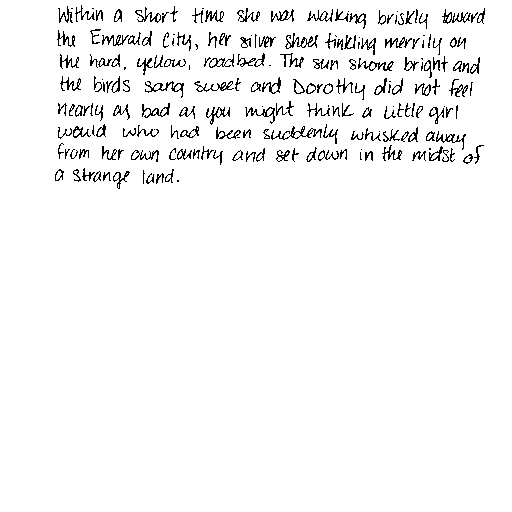 Within a short time she was walking briskly toward
the Emerald City, her silver shoes tinkling merrily on
the hard, yellow, roadbed. The sun shone bright and
the birds sang sweet and Dorothy did not feel
nearly as bad as you might think a little girl
would who had been suddenly whisked away
from her own country and set down in the midst of
a strange land.